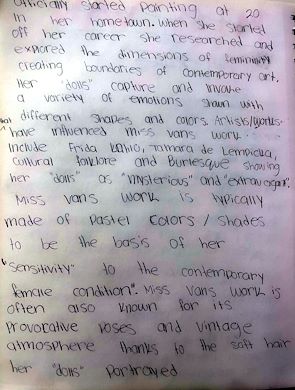 Officially started painting at 20
in her hometown. When she started
off her career she researched and
explored the dimensions of femininity
creating boundaries of contemporary art.
Her "dolls" capture and invoke
a variety of emotions shown with
different shapes and colors. Artists/works
that have influenced miss vans work
Include Frida Kahlo, Tamara de Lempicka,
cultural folklore and Burlesque showing
her "dolls" as "mysterious" and "extravagant".
Miss vans work is typically
made of Pastel colors / shades
to be the basis of her
"Sensitivity" to the contemporary
female condition". Miss vans work is
often also known for its
Provorative poses and vintage
atmosphere thanks to the soft hair
her "dolls" Portrayed